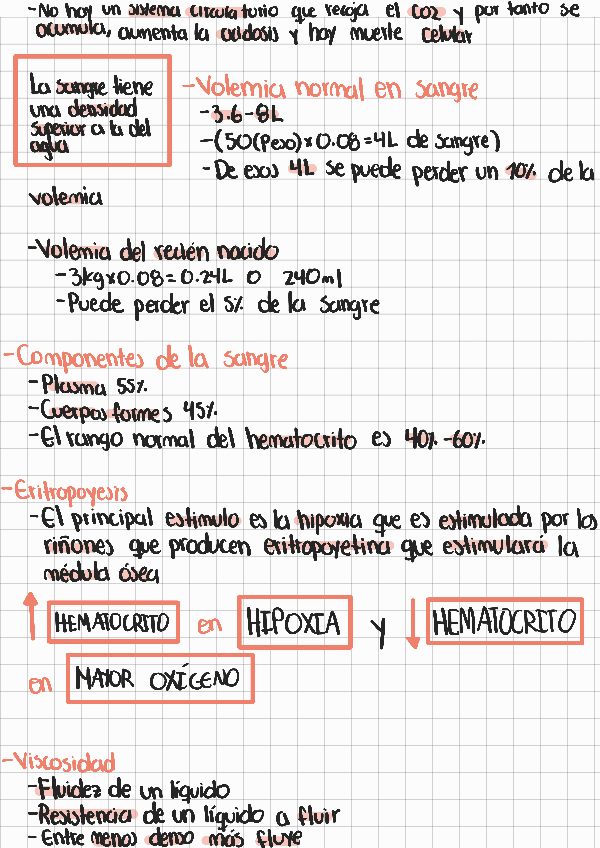 -No hay un sistema circulatorio que recoja el CO2 y por tanto se
acumula, aumenta la acidosis y hay muerte celular
La sangre tiene
una densidad
superior a la del
agua
-Volemia normal en sangre
-3.6-8L
-(50(Peso)x0.08=4L de sangre)
-De esos 4L se puede perder un 10% de la
volemia
-Volemia del recién nacido
-3kgx0.08=0.24L o 240ml
-Puede perder el 5% de la sangre
-Componentes de la sangre
-Plasma 55%
-Cuerpos formes 45%
-El rango normal del hematocrito es 40%-60%
-Eritropoyesis
-El principal estimulo es la hipoxia que es estimulada por los
riñones que producen eritropoyetina que estimulará la
médula ósea
↑ HEMATOCRITO en HIPOXIA y ↓ HEMATOCRITO
en MAYOR OXÍGENO
-Viscosidad
-Fluidez de un líquido
-Resistencia de un líquido a fluir
-Entre menos denso más fluye